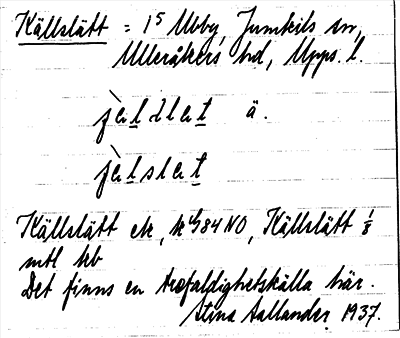 Källslätt = 1⁵ Ubby, Jumkils sn,
Ulleråkers hd, Upps. l.
jàldlat ä.
jàlslat
Källslätt ek, 84 NO, Källslätt 1/8
mtl kb
Det finns en trefaldighetskälla här.
Stina Aallander 1937.